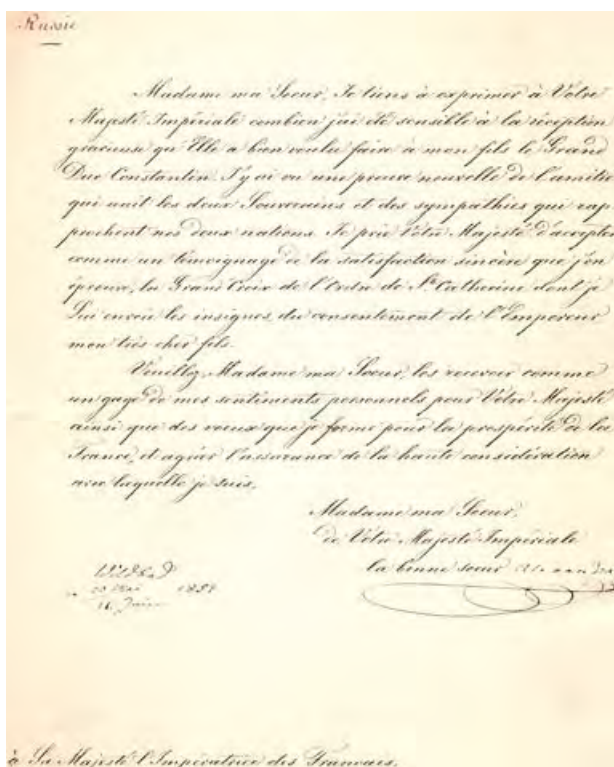 Russie
Madame ma Soeur, Je tiens à exprimer à Vôtre
Majesté Impériale combien j'ai été sensible à la réception
gracieuse qu'Elle a bien voulu faire à mon fils le Grand
Duc Constantin. J'y ai vu une preuve nouvelle de l'amitié
qui unit les deux Souverains et des sympathies qui rap-
prochent nos deux nations. Je prie Vôtre Majesté d'accepter
comme un témoignage de la satisfaction sincère que j'en
éprouve, la Grand Croix de l'Ordre de Ste Catherine dont je
Lui envoie les insignes, du consentement de l'Empereur
mon très cher fils.
Veuillez, Madame ma Soeur, les recevoir comme
un gage de mes sentiments personnels pour Vôtre Majesté
ainsi que des voeux que je forme pour la prospérité de la
France, et agréer l'assurance de la haute considération
avec laquelle je suis,
Madame ma Soeur,
de Vôtre Majesté Impériale
la bonne soeur
Wildbad
Juin
à Sa Majesté l'Impératrice des Français.